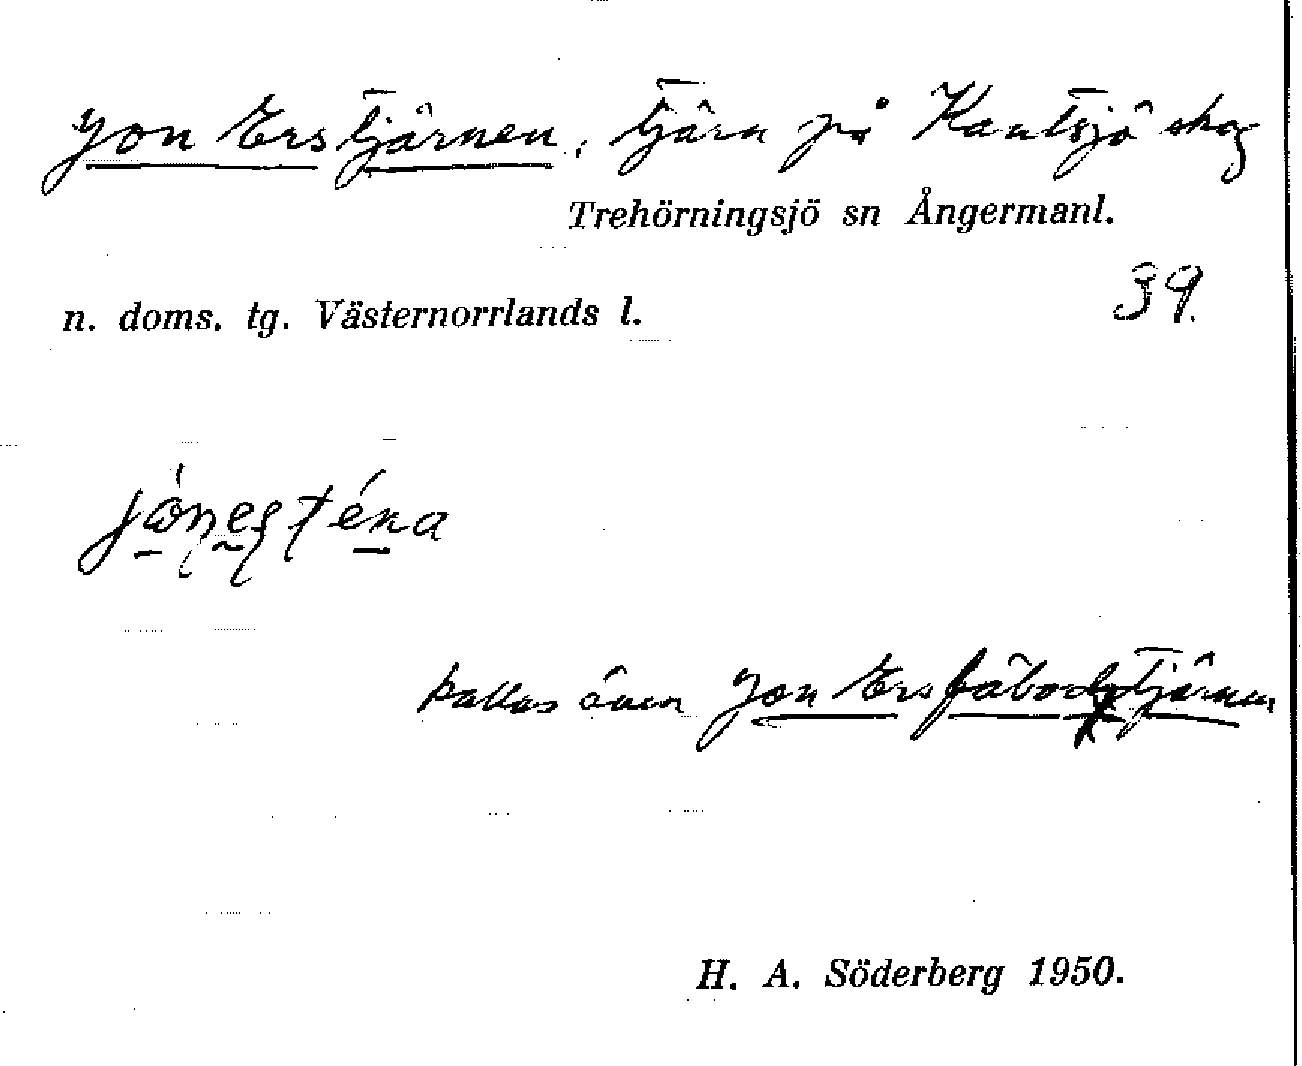 Jon Erstjärnen, tjärn på Kantsjö skog
Trehörningsjö sn Ångermanl.
n. doms. tg. Västernorrlands l.
39.
kallas även Jon Ersfäbodtjärnen
H. A. Söderberg 1950.